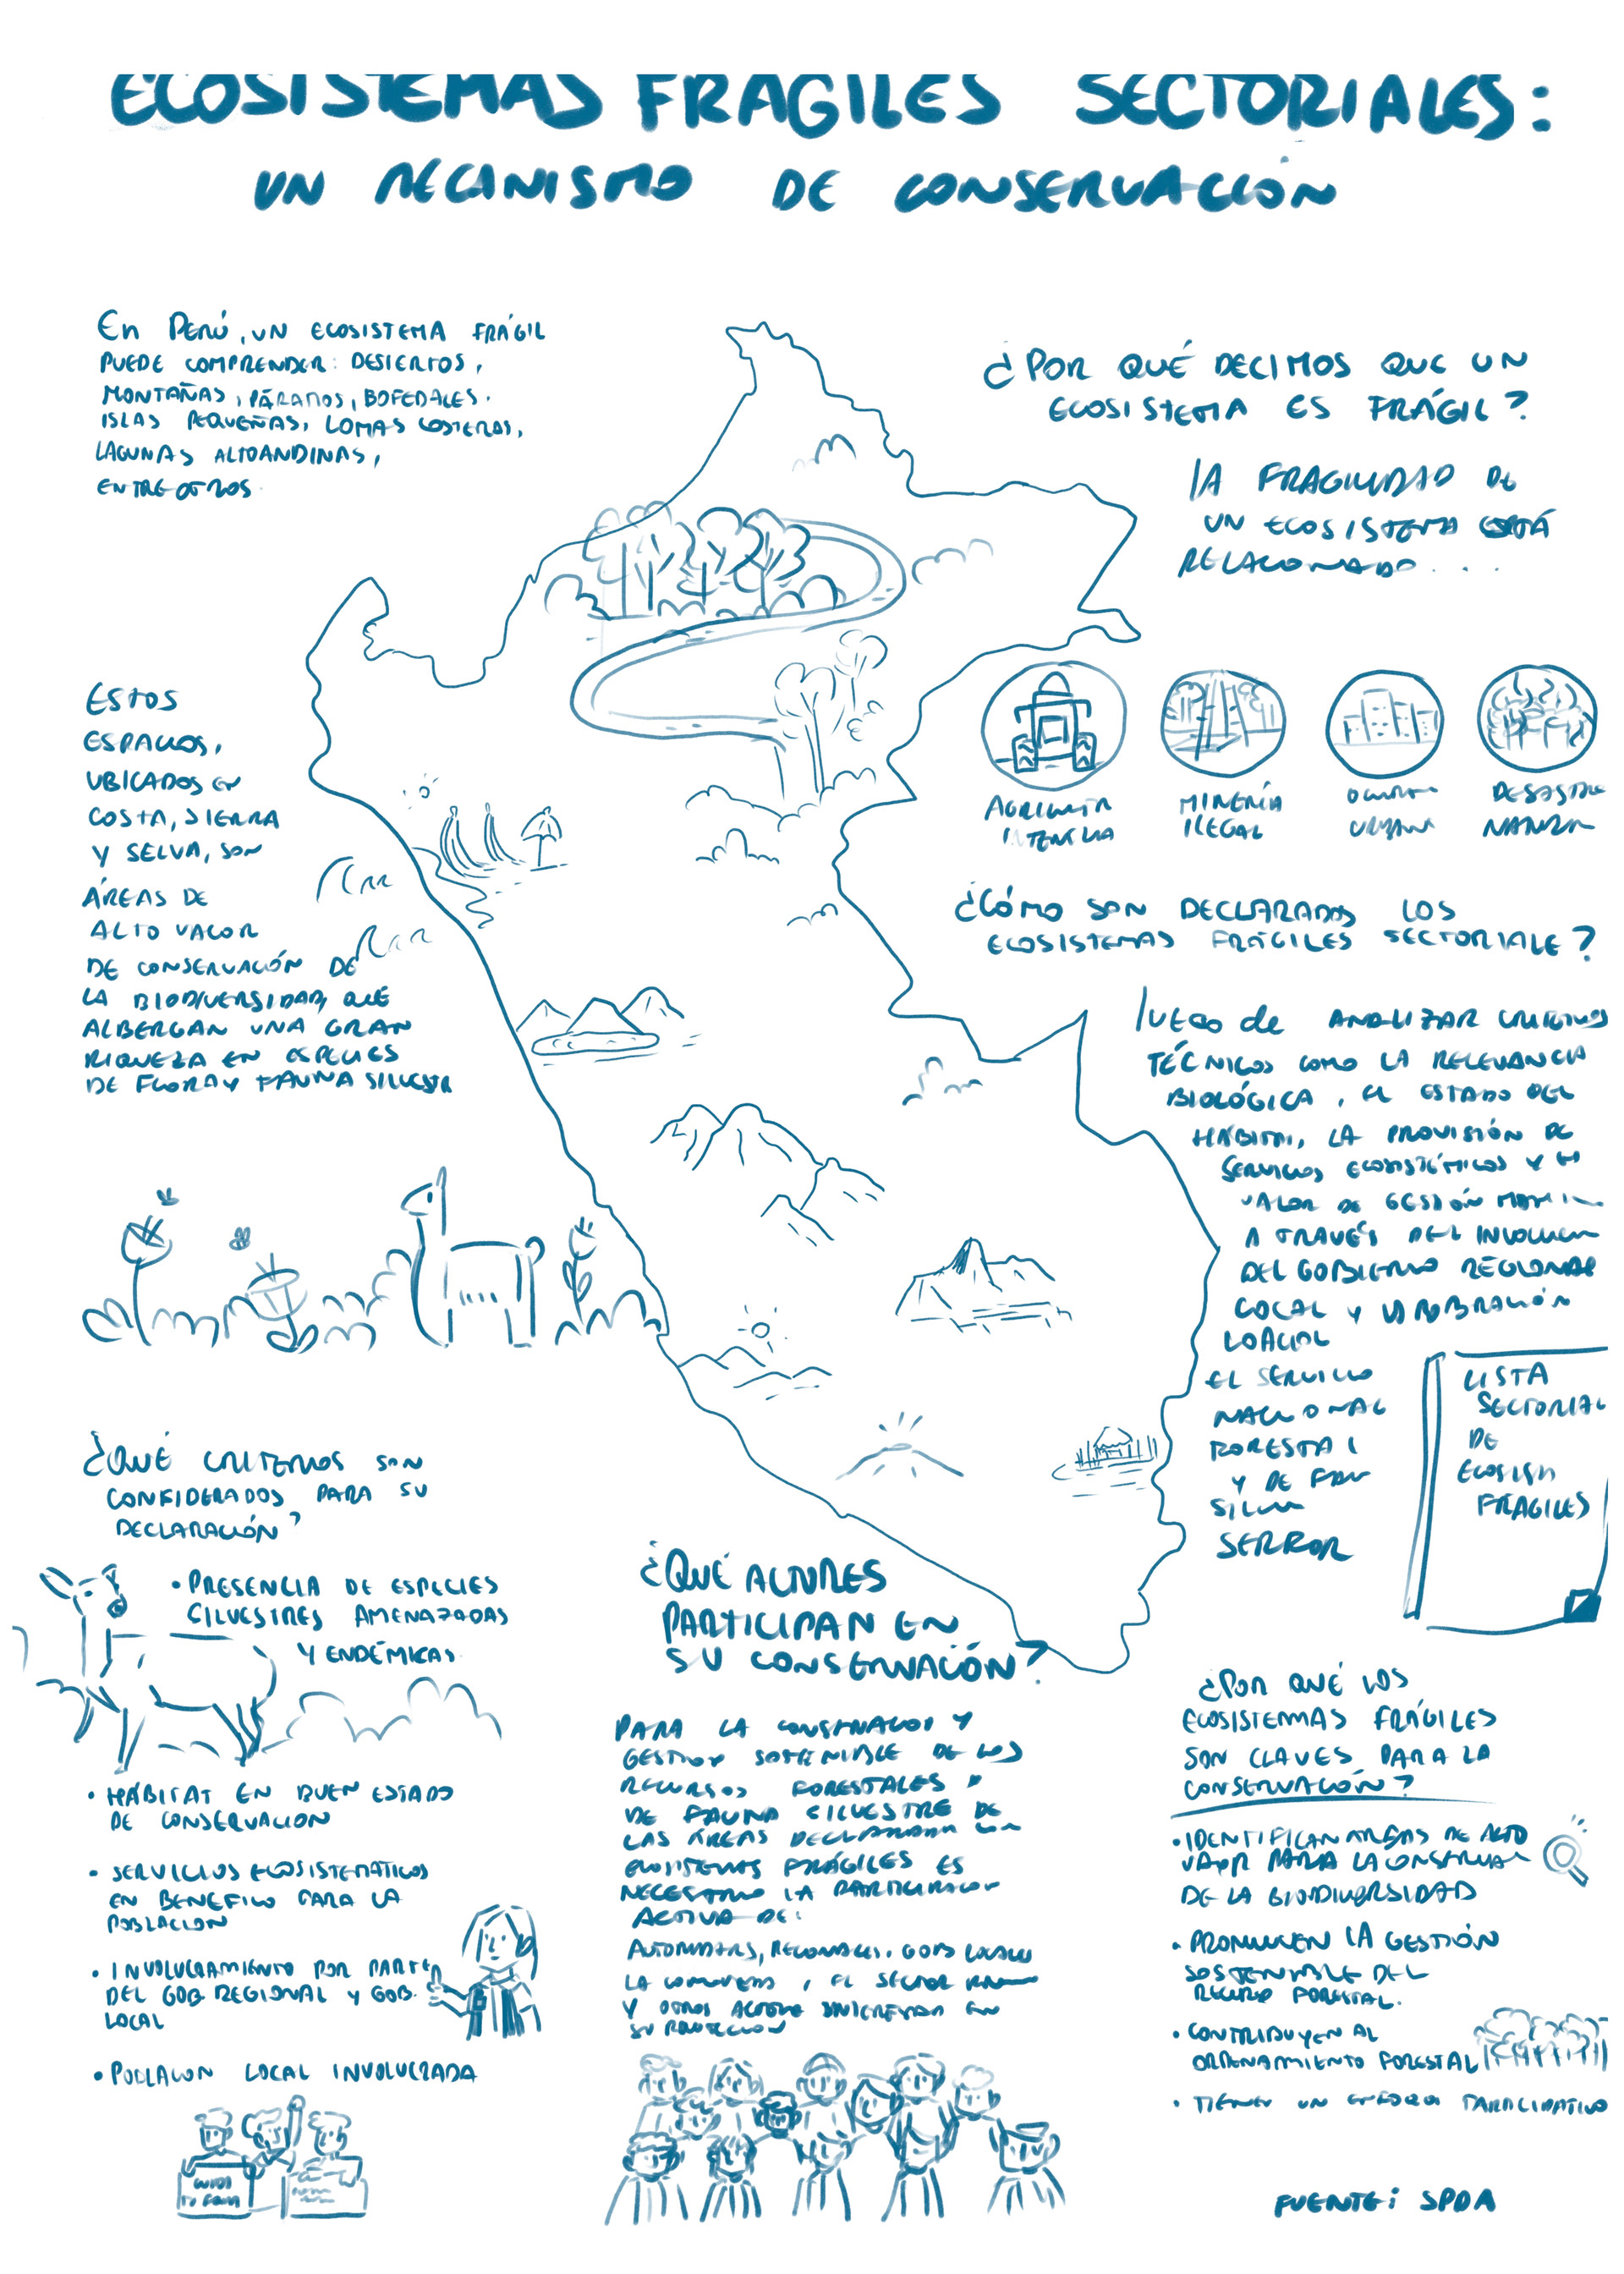 ECOSISTEMAS FRAGILES SECTORIALES:
UN MECANISMO DE CONSERVACIÓN
En PERÚ, UN ECOSISTEMA FRÁGIL
PUEDE COMPRENDER: DESIERTOS,
MONTAÑAS, PÁRAMOS, BOFEDALES.
ISLAS PEQUEÑAS, LOMAS COSTERAS,
LAGUNAS ALTOANDINAS,
ENTRE OTROS.
ESTOS
ESPACIOS,
UBICADOS EN
COSTA, SIERRA
Y SELVA, SON
ÁREAS DE
ALTO VALOR
DE CONSERVACIÓN DE
LA BIODIVERSIDAD, QUE
ALBERGAN UNA GRAN
RIQUEZA EN ESPECIES
DE FLORA Y FAUNA SILVESTR
¿POR QUÉ DECIMOS QUE UN
ECOSISTEMA ES FRÁGIL?
LA FRAGILIDAD DE
UN ECOSISTEMA ESTÁ
RELACIONADO...
MINERÍA
ILEGAL
DESASTRE
¿CÓMO SON DECLARADOS LOS
ECOSISTEMAS FRÁGILES SECTORIALE?
LUEGO de ANALIZAR
TÉCNICOS COMO LA RELEVANCIA
BIOLÓGICA, EL ESTADO DEL
HÁBITAT, LA PROVISIÓN DE
SERVICIOS ECOSISTÉMICOS Y EL
VALOR DE GESTIÓN
A TRAVÉS DEL
DEL GOBIERNO REGIONAL
LOCAL Y
EL SERVICIO
NACIONAL
FORESTAL
Y DE
SERFOR
LISTA
SECTORIAL
DE
ECOSIS
FRAGILES
¿QUÉ CRITERIOS SON
CONSIDERADOS PARA SU
DECLARACIÓN?
• PRESENCIA DE ESPECIES
SILVESTRES AMENAZADAS
Y ENDÉMICAS.
• HÁBITAT EN BUEN ESTADO
DE CONSERVACION
• SERVICIOS ECOSISTEMÁTICOS
EN BENEFICIO PARA LA
POBLACION
• INVOLUCRAMIENTO POR PARTE
DEL GOB. REGIONAL Y GOB.
LOCAL
• POBLACION LOCAL INVOLUCRADA
¿QUÉ ACTORES
PARTICIPAN EN
SU CONSERVACIÓN?
PARA LA CONSERVACION Y
GESTION SOSTENIBLE DE LOS
RECURSOS FORESTALES Y
DE FAUNA SILVESTRE DE
LAS ÁREAS DECLARADA
ECOSISTEMAS FRÁGILES ES
NECESARIO LA PARTICIPACION
ACTIVA DE:
LA COMUNIDAD, EL SECTOR
Y OTROS EN
SU PROTECCION
¿POR QUÉ LOS
ECOSISTEMAS FRÁGILES
SON CLAVES PARA LA
CONSERVACIÓN?
• IDENTIFICAN AREAS DE ALTO
VALOR PARA LA CONSERVA
DE LA BIODIVERSIDAD
• PROMUEVEN LA GESTIÓN
SOSTENIBLE DEL
RECURSO FORESTAL.
• CONTRIBUYEN AL
ORDENAMIENTO FORESTAL
• TIENEN UN PARTICIPATIVO
FUENTE: SPDA